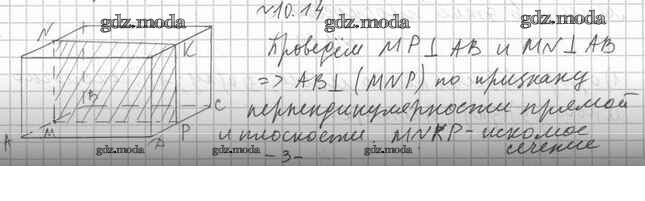 ~10.14
gdz.moda gdz.moda gdz.moda
Проведём MP⊥AB и MN⊥AB
=> AB⊥(MNP) по признаку
перпендикулярности прямой
и плоскости. MNKP - искомое
сечение
N K
B
A M D P C
gdz.moda gdz.moda gdz.moda
-3-